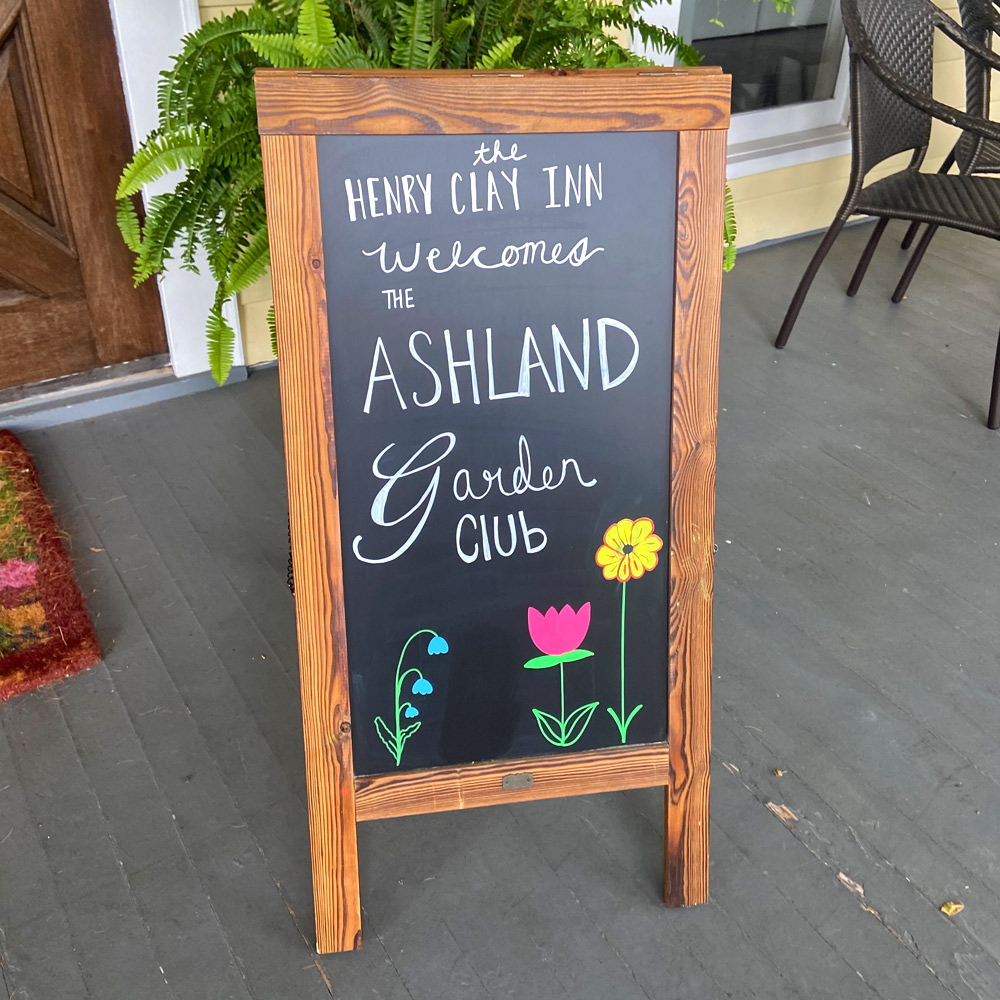 the
HENRY CLAY INN
Welcomes
THE
ASHLAND
Garden
CLUb